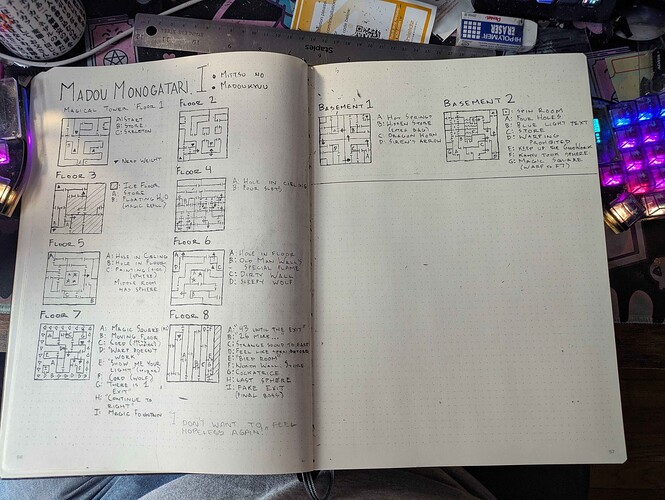 MADOU MONOGATARI I
• MITTSU NO
• MADOUKYUU
MAGICAL TOWER FLOOR 1
A: START
B: STORE
C: SKELETON
♥ NEED WEIGHT
FLOOR 2
FLOOR 3
ICE FLOOR
A: STORE
B: FLOATING H2O
FLOOR 4
A: HOLE IN CEILING
B: FOUR SLOTS
FLOOR 5
A: HOLE IN CEILING
B: HOLE IN FLOOR
C: PAINTING
(SPHERE)
MIDDLE ROOM
HAS SPHERE
FLOOR 6
A: HOLE IN FLOOR
B: OLD MAN WALL
SPECIAL FLAME
C: DIRTY WALL
D: SLEEPY WOLF
FLOOR 7
A: MAGIC SQUARE
B: MOVING FLOOR
C:
D: "WARP DOESN'T
WORK"
E: "SHOW ME YOUR
LIGHT"
F: (WOLF)
G: "THERE IS 1
EXIT"
H: "CONTINUE TO
RIGHT"
I: MAGIC FOUNTAIN
FLOOR 8
A: "43 UNTIL THE EXIT"
B: "26 MORE...
C: STRANGE SOUND
D: FEEL LIKE
E: "BIRD ROOM"
F: WALL STORE
G: COCKATRICE
H: LAST SPHERE
I: FAKE EXIT
(FINAL BOSS)
I DON'T WANT TO FEEL
HOPELESS AGAIN!
BASEMENT 1
A HOT SPRING
B: STORE
C: DRAGON HORN
D: SIREN'S ARROW
BASEMENT 2
SPIN ROOM
A: FOUR HOLES
B: BLUE LIGHT TEXT
C: STORE
D: WARPING
PROHIBITED
E: KEEP UP THE GOOD WORK
F: TOOK SPHERE
G: MAGIC SQUARE
(WARP TO F7)
Staples
Pentel
HI-POLYMER
ERASER